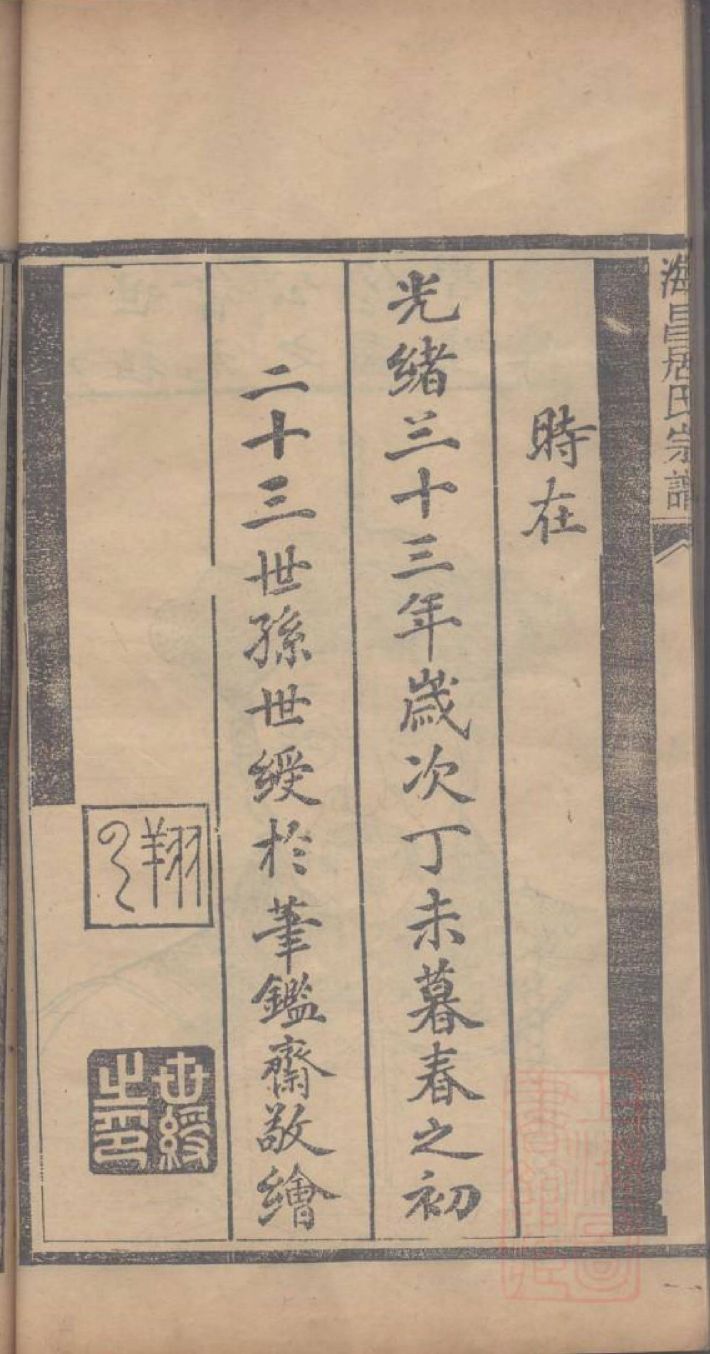 海昌居氏宗譜
時在
光緒三十三年歲次丁未暮春之初
二十三世孫世綬於筆鑑齋敬繪
世綬之印